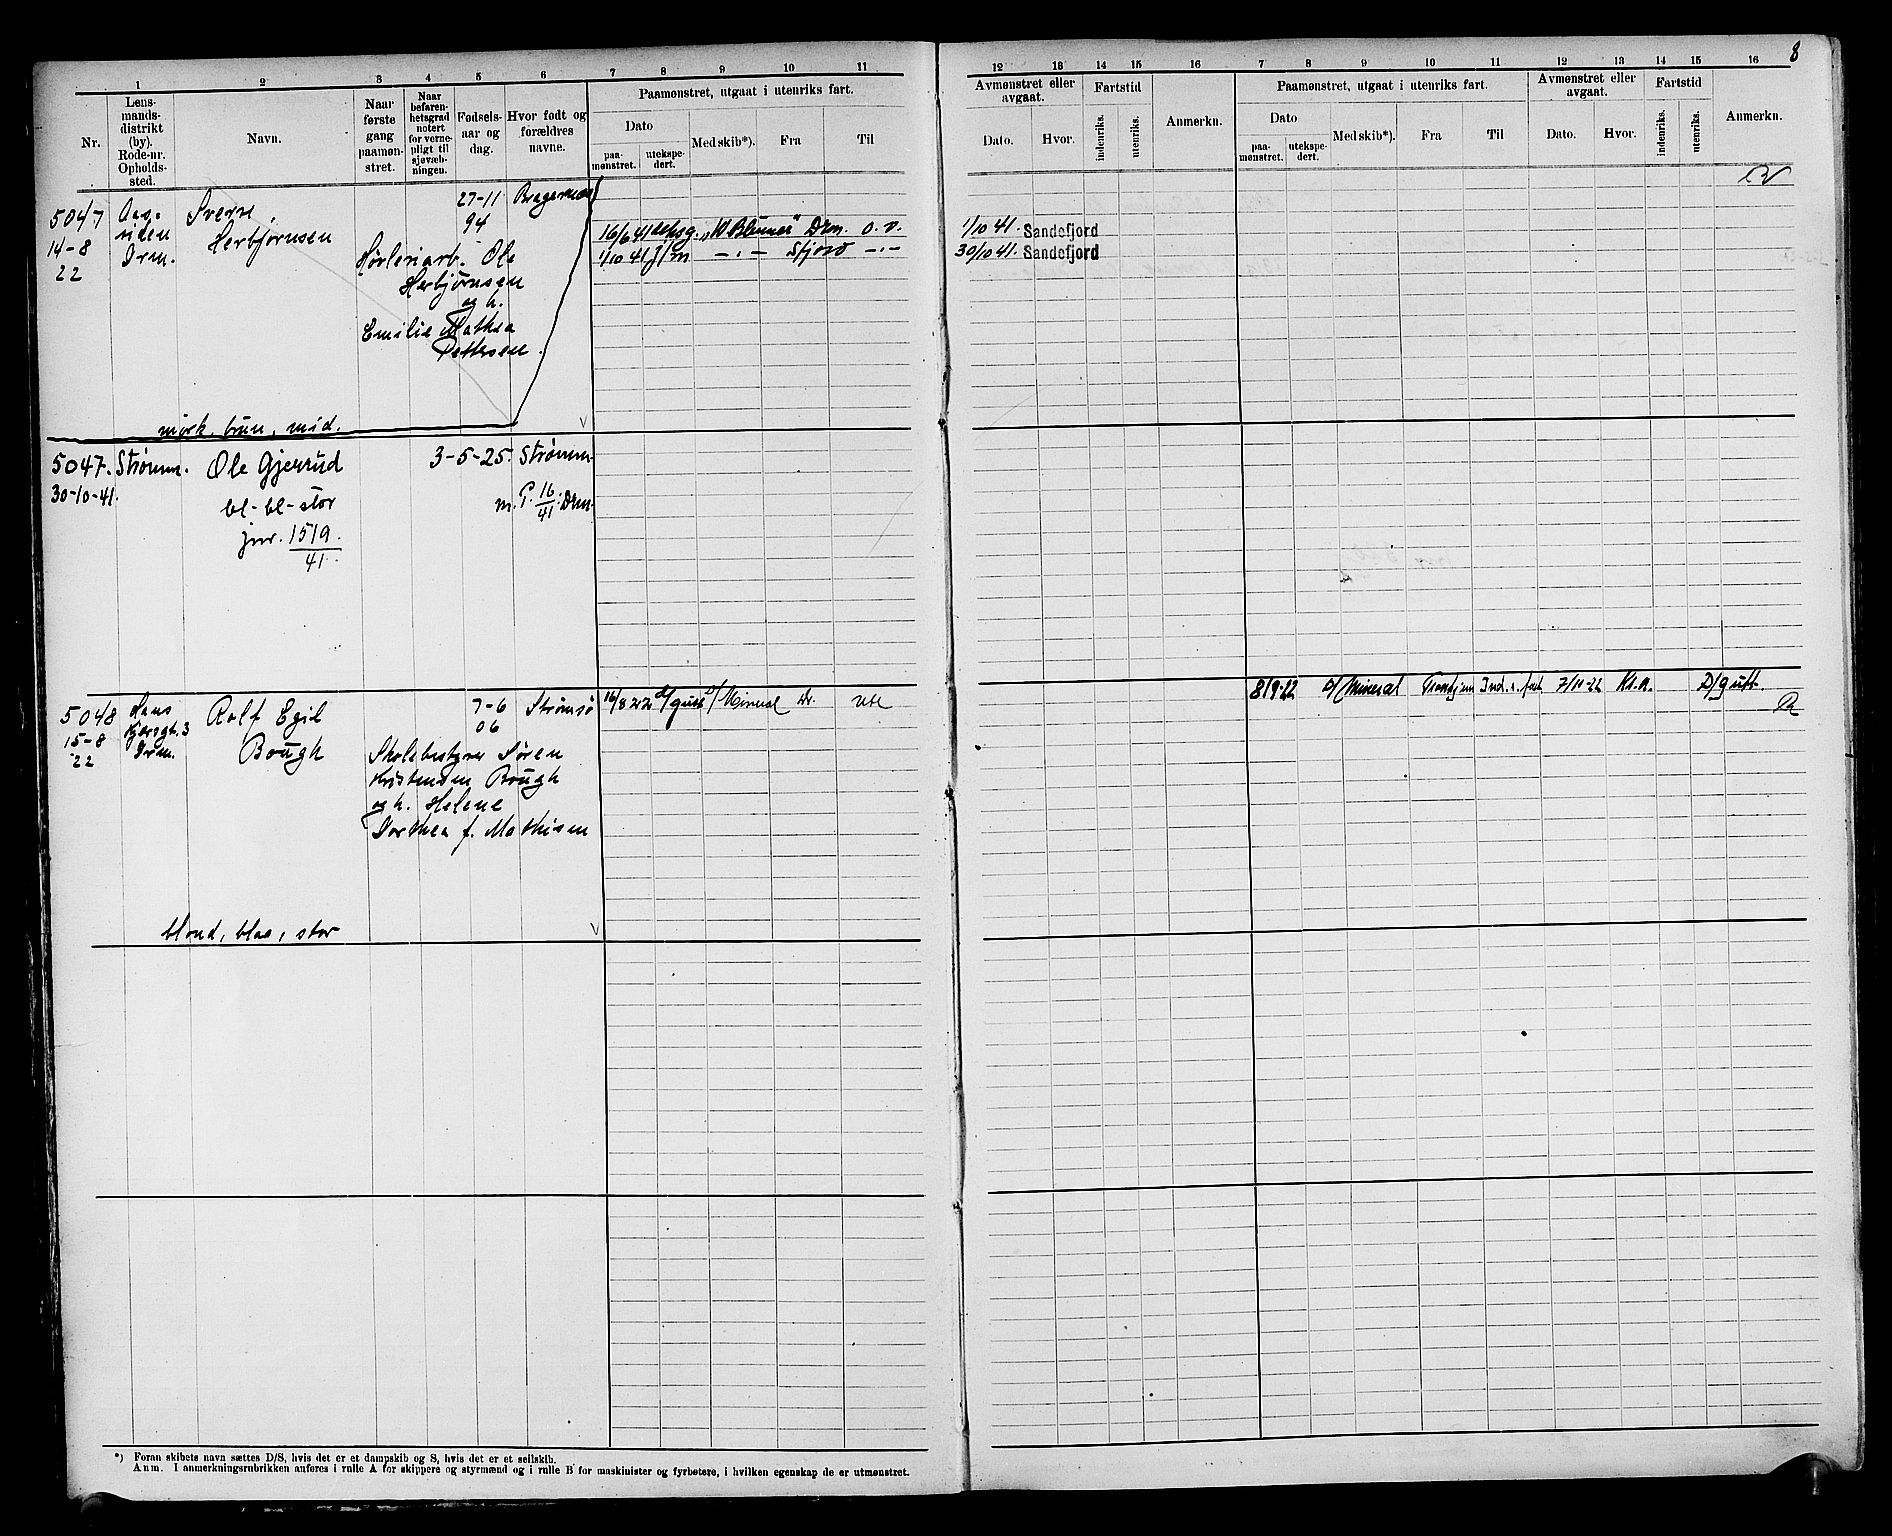 8
1 2 3 4 5 6 7 8 9 10 11
Nr.
Lens-
mands-
distrikt
(by).
Rode-nr.
Opholds-
sted.
Navn.
Naar
første
gang
paamøn-
stret.
Naar
befaren-
hetsgrad
notert
for verne-
pligt til
sjøvæb-
ningen.
Fødsels-
aar og
dag.
Hvor født og
forældres
navne.
Paamønstret, utgaat i utenriks fart.
Dato
paa-
mønstret.
utekspe-
dert.
Med skib*).
Fra
Til
12 13 14 15 16 7 8 9 10 11 12 13 14 15 16
Avmønstret eller
avgaat.
Dato.
Hvor.
Fartstid
indenriks.
utenriks.
Anmerkn.
Paamønstret, utgaat i utenriks fart.
Dato
paa-
mønstret.
utekspe-
dert.
Med skib*).
Fra
Til
Avmønstret eller
avgaat.
Dato.
Hvor.
Fartstid
indenriks.
utenriks.
Anmerkn.
5047 Aas- Sverre 27-11 Bragernes
siden Herbjørnsen 94
14-8 Drm.
22
Ole
Herbjørnsen
og h.
Emilie Mathea
Pettersen.
mørk, brun, mid.
16/6 41 Drm. o. v.
1/10 41 j/m -"- Sfjord -"-
1/10 41. Sandefjord
30/10 41. Sandefjord
5047. Strømm. Ole Gjerrud 3-5-25. Strømm.
30-10-41.
bl- bl- stor
m. P. 16/41 Drm.
jnr. 1519.
41.
5048 Hans Rolf Egil 7-6 Strømsø
15-8 3 Bough 06
22 Drm.
Skolebestyrer Søren
Kristensen Bough
og h. Helene
Dorthea f. Mathisen
blond, blaa, stor
16/8 22 d/gutt D/ Mineral Dr. ute
8/9-22 D/ Mineral 7/11-22 Kr.a. D/gutt.
*) Foran skibets navn sættes D/S, hvis det er et dampskib og S, hvis det er et seilskib.
Anm. I anmerkningsrubrikken anføres i rulle A for skippere og styrmænd og i rulle B for maskinister og fyrbøtere, i hvilken egenskap de er utmønstret.